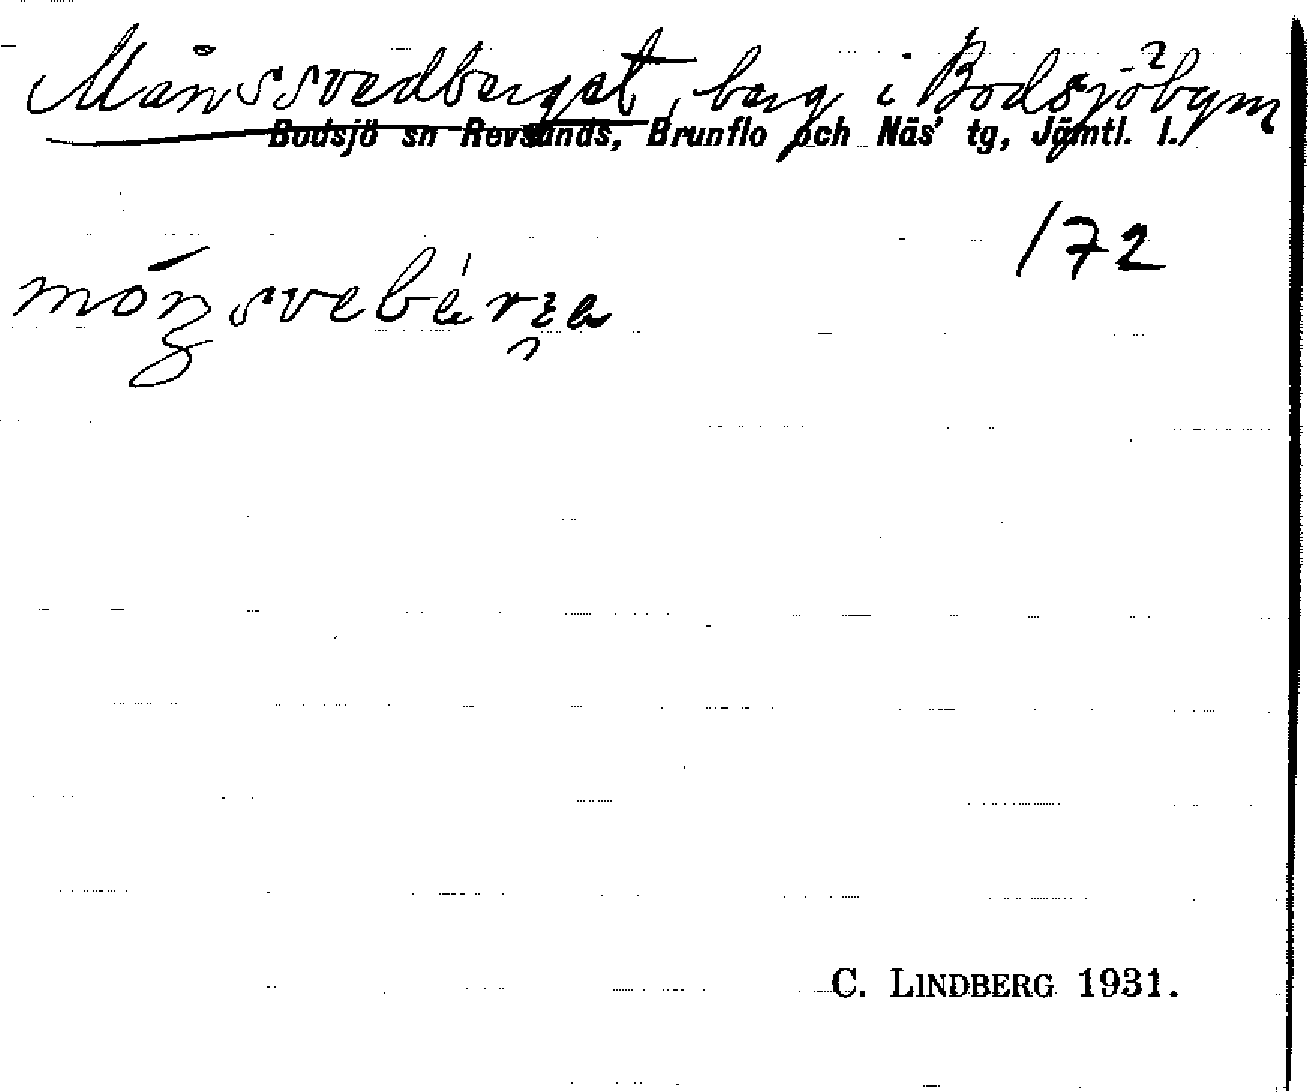 Månssvedberget, berg i Bodsjöbyn
Bodsjö sn Revsunds, Brunflo och Näs' tg, Jämtl. l.
172
C. LINDBERG 1931.